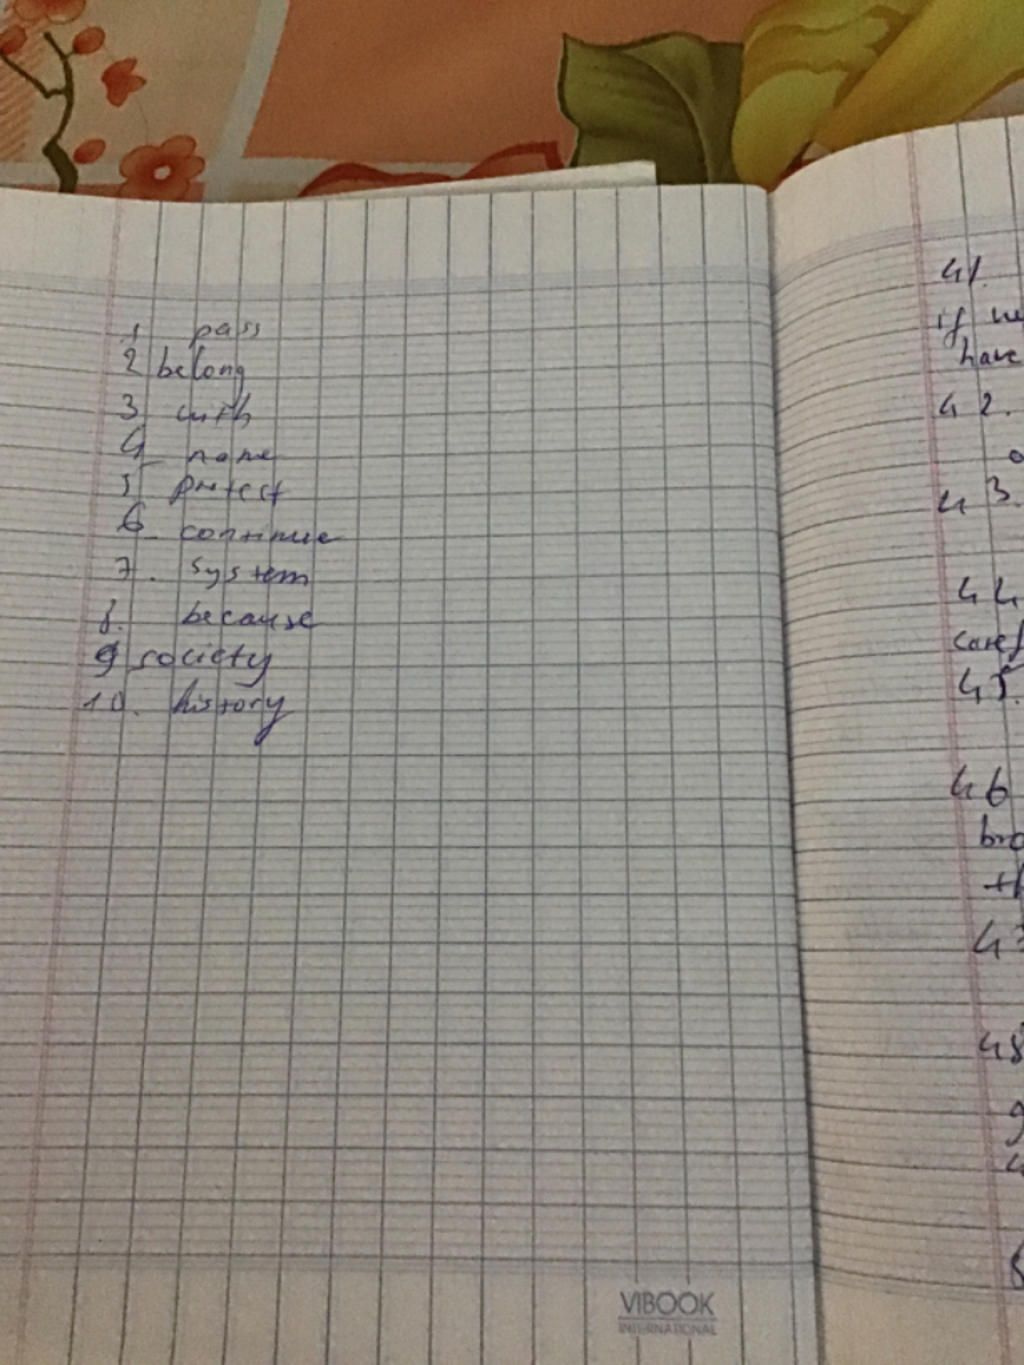 1 pass
2 belong
3 with
4 name
5 protest
6 continue
7. system
8. because
9 society
10. history
VIBOOK
INTERNATIONAL
41.
if
have
42.
43.
44
45.
46
48